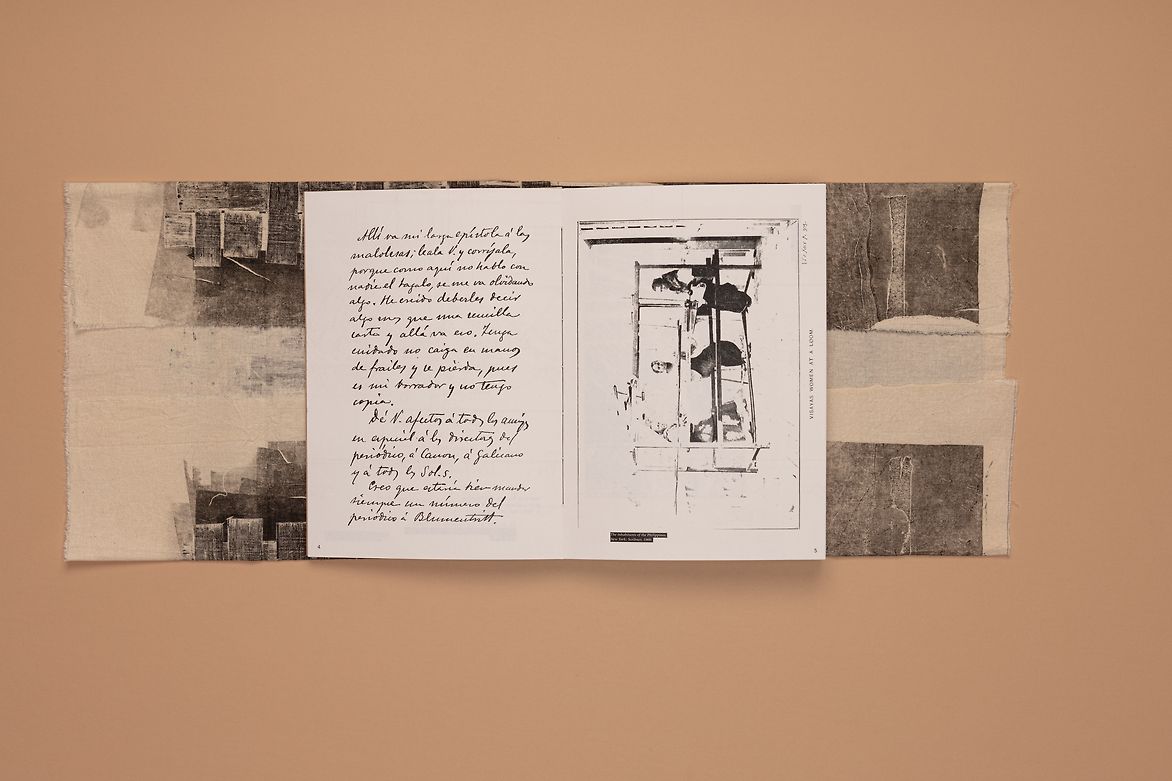 Allí va mi larga epístola á las
malolesas; leala V. y corríjala,
porque como aquí no hablo con
nadie el tagalo, se me va olvidando
algo. He creido deberles decir
algo mas que una sencilla
carta y allá va eso. Tenga
cuidado no caiga en manos
de frailes y se pierda, pues
es mi borrador y no tengo
copia.
Dé V. afectos á todos los amigos
en especial á los directores del
periódico, á Canon, á Galicano
y á todos los Sol.s.
Creo que estaria bien mandar
siempre un número del
periódico á Blumentritt.
4
VISAYAS WOMEN AT A LOOM
The Inhabitants of the Philippines.
New York: Scribner, 1900.
5